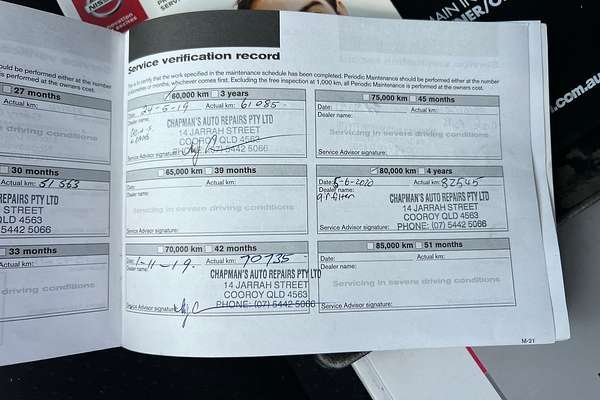 NISSAN
MAIN IN
.com.au
27 months
Actual km:
driving conditions
30 months
Actual km: 51 563
REPAIRS PTY LTD
STREET
QLD 4563
5442 5066
33 months
Actual km:
driving conditions
Service verification record
This is to certify that the work specified in the maintenance schedule has been completed. Periodic Maintenance should be performed either at the number
of kilometres or months, whichever comes first. Excluding the free inspection at 1,000 km, all Periodic Maintenance is performed at the owners cost.
60,000 km 3 years
Date: 24-5-19 Actual km: 61085
Dealer name:
CHAPMAN'S AUTO REPAIRS PTY LTD
14 JARRAH STREET
COOROY QLD 4563
(07) 5442 5066
Service Advisor signature:
75,000 km 45 months
Date: Actual km:
Dealer name:
Servicing in severe driving conditions
Service Advisor signature:
65,000 km 39 months
Date: Actual km:
Dealer name:
Servicing in severe driving conditions
Service Advisor signature:
80,000 km 4 years
Date: 5-6-2020 Actual km: 82545
Dealer name:
CHAPMAN'S AUTO REPAIRS PTY LTD
14 JARRAH STREET
COOROY QLD 4563
PHONE: (07) 5442 5066
Service Advisor signature:
70,000 km 42 months
Date: 1-11-19. Actual km: 70735
Dealer name:
CHAPMAN'S AUTO REPAIRS PTY LTD
14 JARRAH STREET
COOROY QLD 4563
PHONE: (07) 5442 5066
Service Advisor signature:
85,000 km 51 months
Date: Actual km:
Dealer name:
Servicing in severe driving conditions
Service Advisor signature:
M-21